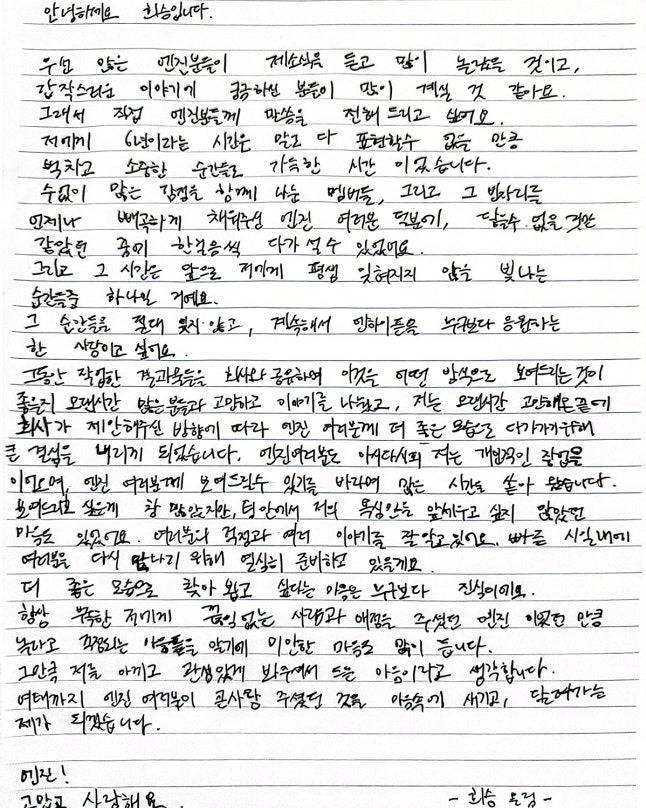 안녕하세요 희승입니다.
우선 많은 엔진분들이 제소식을 듣고 많이 놀랐을 것이고,
갑작스러운 이야기에 궁금하신 분들이 많이 계실 것 같아요.
그래서 직접 엔진분들께 말씀을 전해 드리고 싶어요.
저에게 6년이라는 시간은 말로 다 표현할수 없을 만큼
벅차고 소중한 순간들로 가득한 시간 이었습니다.
수없이 많은 감정을 함께 나눈 멤버들, 그리고 그 빈자리를
언제나 빼곡하게 채워주신 엔진 여러분 덕분에, 닿을수 없을 것만
같았던 꿈에 한걸음씩 다가 설 수 있었어요.
그리고 그 시간은 앞으로 저에게 평생 잊혀지지 않을 빛나는
순간들중 하나일 거예요.
그 순간들을 절대 잊지 않고, 계속해서 엔하이픈을 누구보다 응원하는
한 사람이고 싶어요.
그동안 작업한 결과물들을 회사와 공유하며 이것을 어떤 방식으로 보여드리는것이
좋을지 오랜시간 많은 분들과 고민하고 이야기를 나눴고, 저는 오랜시간 고민해온 끝에
회사가 제안해주신 방향에 따라 엔진 여러분께 더 좋은 모습으로 다가가기위해
큰 결심을 내리게 되었습니다. 엔진여러분도 아시다시피 저는 개인적인 작업을
이어오며, 엔진 여러분께 보여드릴수 있기를 바라며 많은 시간을 쏟아 왔습니다.
보여드리고 싶은게 참 많았지만, 팀 안에서 저의 욕심만을 앞세우고 싶지 않았던
마음도 있었어요. 여러분의 걱정과 여러 이야기를 잘 알고 있어요. 빠른 시일내에
여러분을 다시 만나기 위해 열심히 준비하고 있을게요.
더 좋은 모습으로 찾아 뵙고 싶다는 마음은 누구보다 진심이에요.
항상 부족한 저에게 끊임없는 사랑과 애정을 주셨던 엔진 이었던 만큼
놀라고 걱정되는 마음들을 알기에 미안한 마음도 많이 듭니다.
그만큼 저를 아끼고 관심있게 봐주셔서 드는 마음이라고 생각합니다.
여태까지 엔진 여러분이 큰사랑 주셨던 것을 마음속에 새기고, 달려가는
제가 되겠습니다.
엔진!
고맙고 사랑해요
- 희승 드림 -